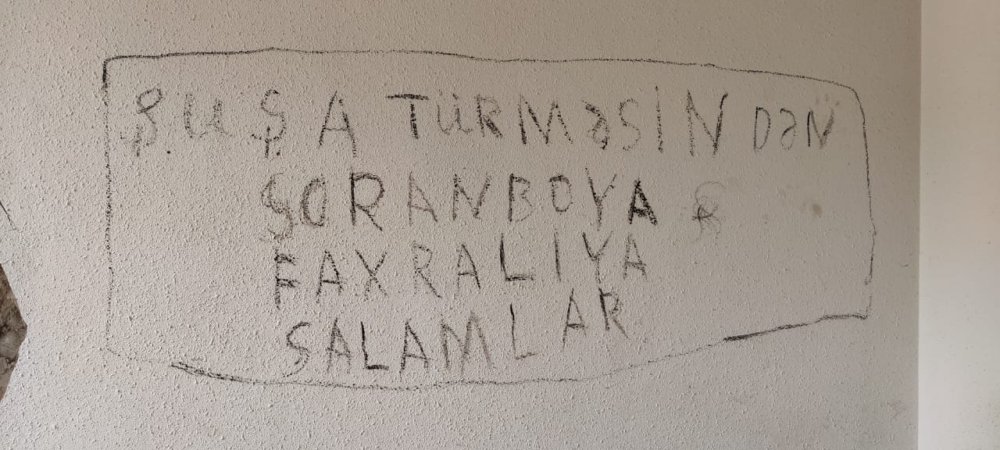 ŞUŞA TÜRMƏSİNDƏN
GORANBOYA
FAXRALIYA
SALAMLAR